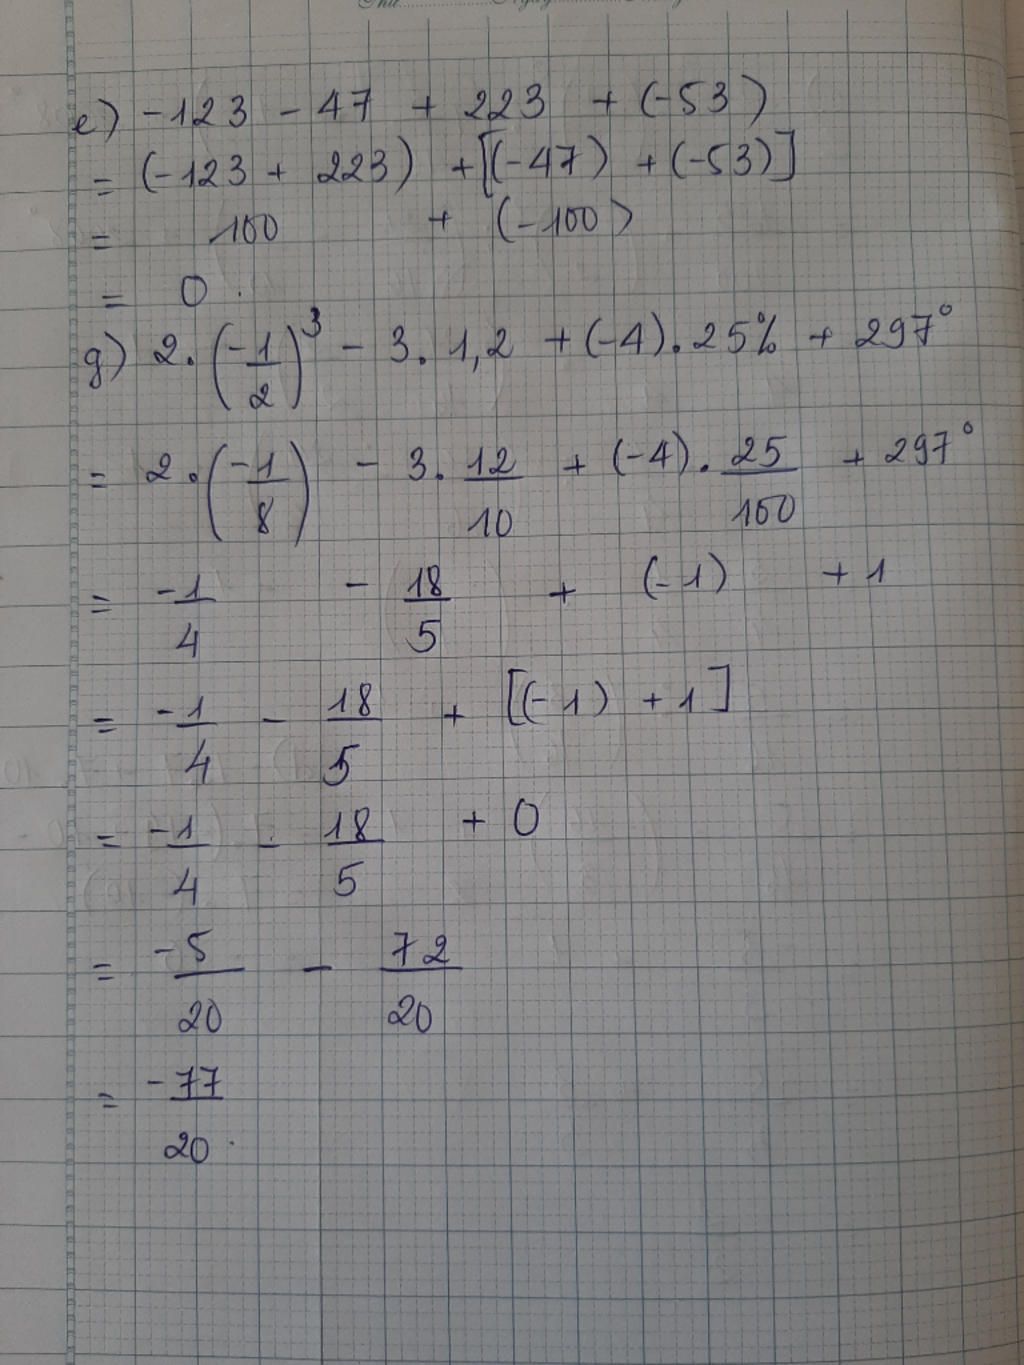 e) -123 - 47 + 223 + (-53)
= (-123 + 223) + [(-47) + (-53)]
= 100 + (-100)
= 0.
g) 2.(-1/2)³ - 3.1,2 + (-4).25% + 297⁰
= 2.(-1/8) - 3.12/10 + (-4).25/100 + 297⁰
= -1/4 - 18/5 + (-1) + 1
= -1/4 - 18/5 + [(-1) + 1]
= -1/4 - 18/5 + 0
= -5/20 - 72/20
= -77/20.